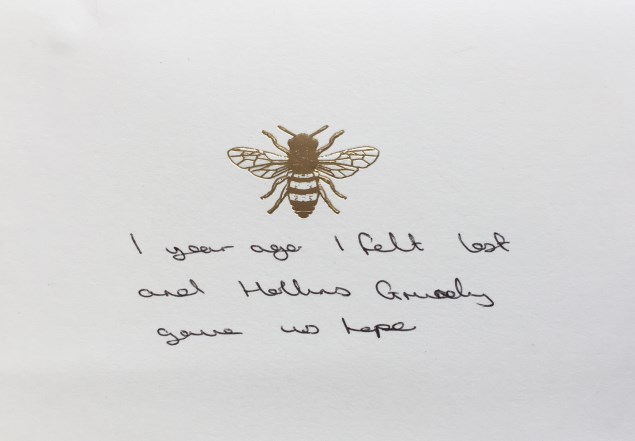 1 year ago I felt lost
and Hollins Grundy
gave us hope